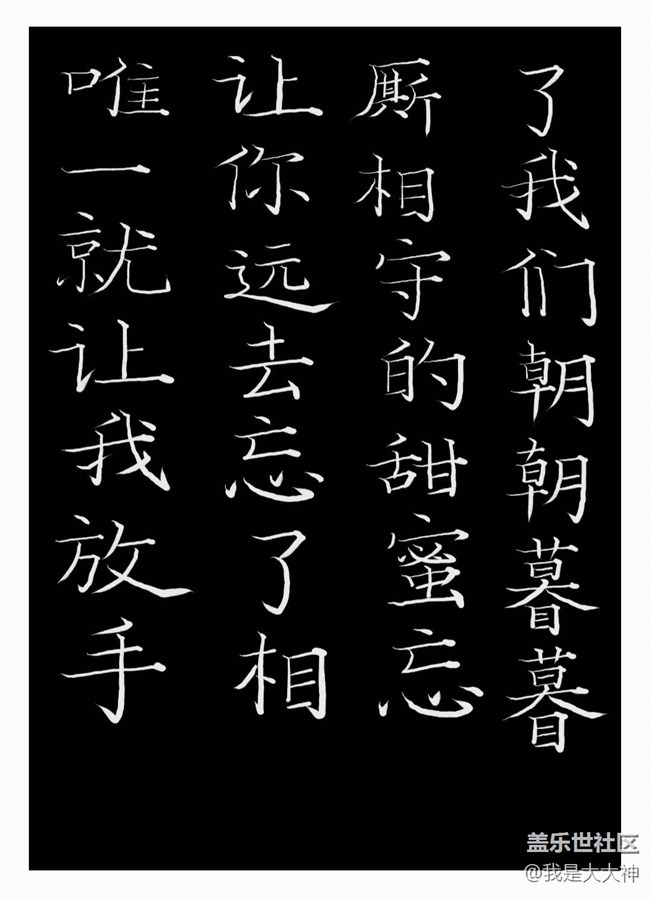 唯一就让我放手
让你远去忘了相
厮相守的甜蜜忘
了我们朝朝暮暮
盖乐世社区
@我是大大神